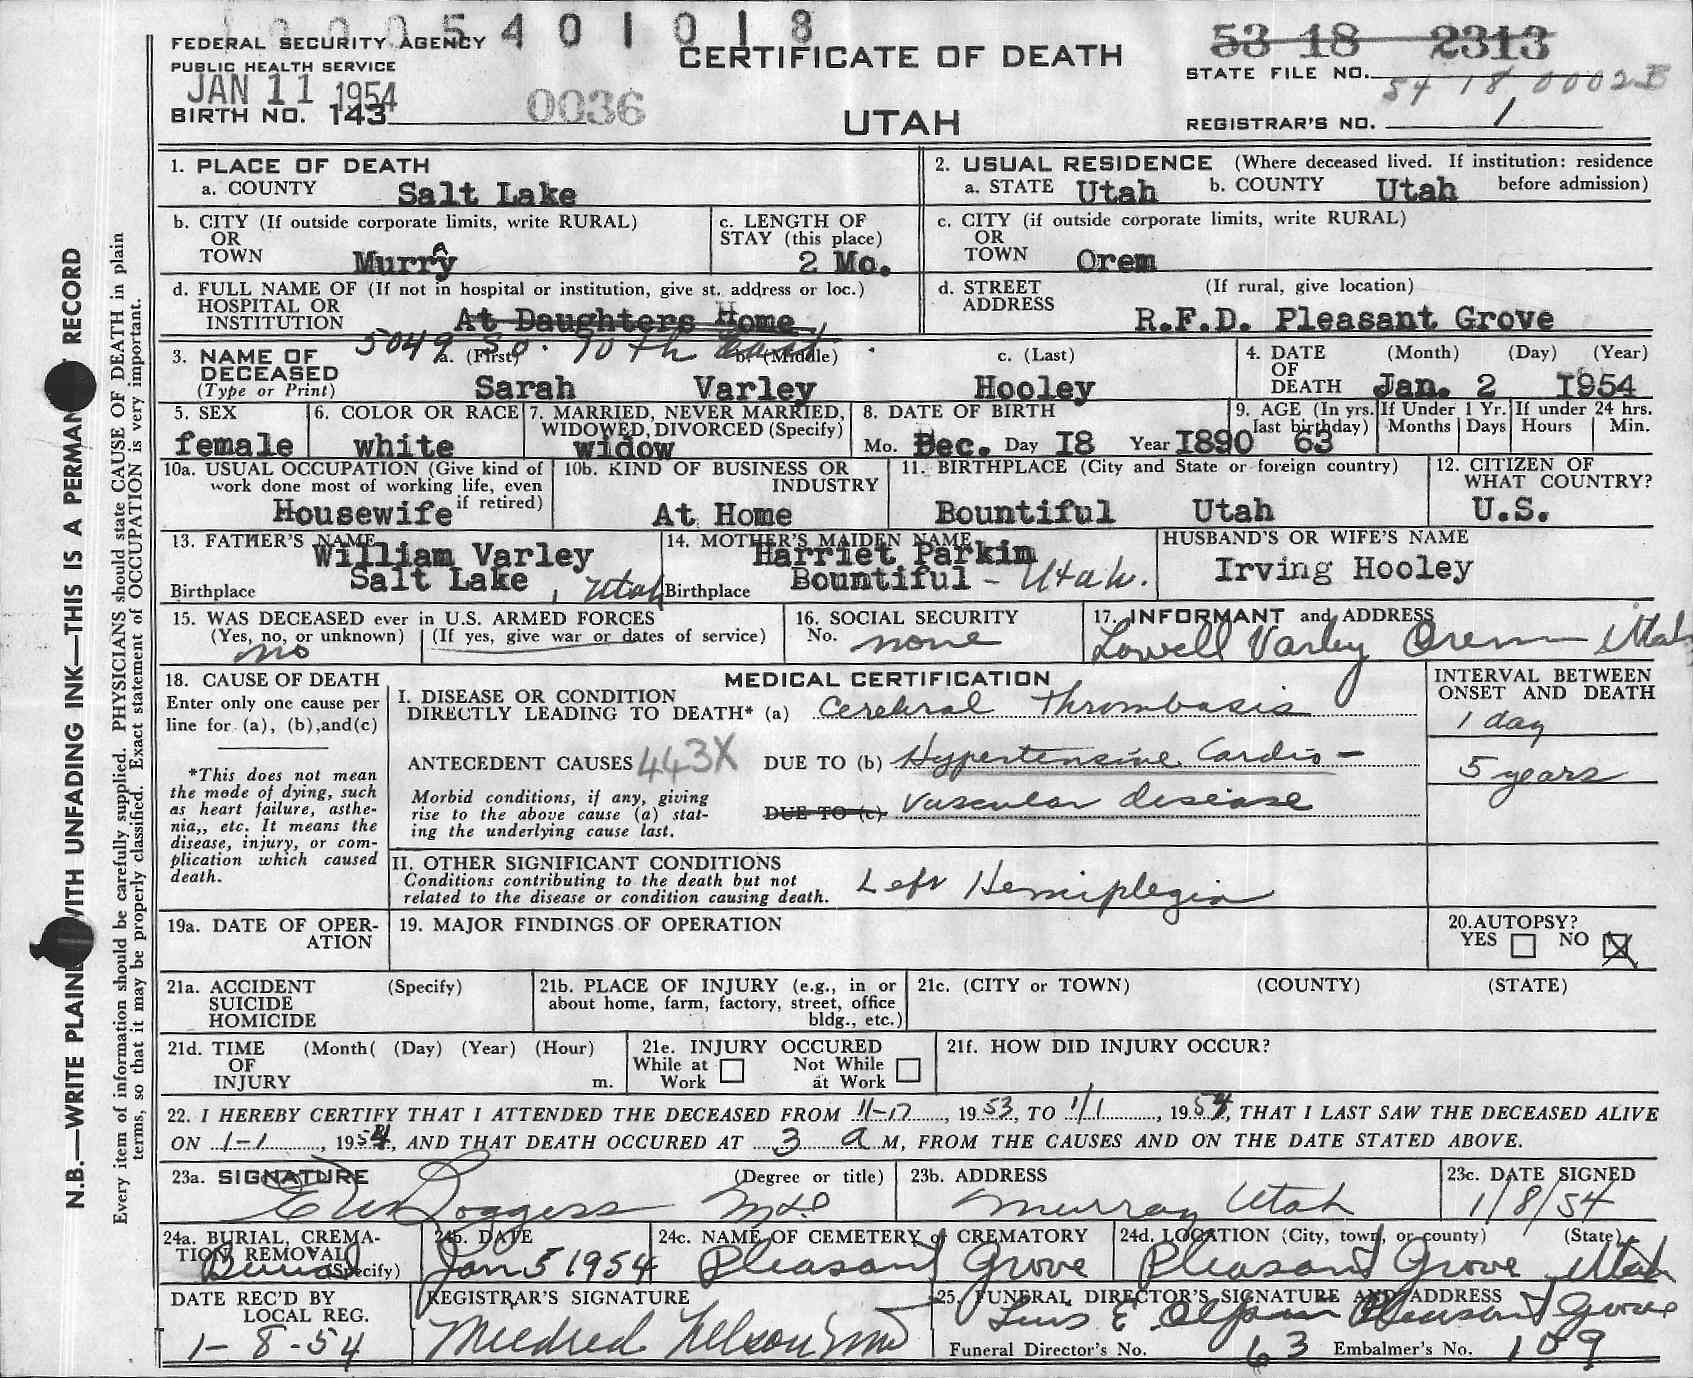 1 0 0 0 5 4 0 1 0 1 8
FEDERAL SECURITY AGENCY
PUBLIC HEALTH SERVICE
JAN 11 1954
BIRTH NO. 143
0036
CERTIFICATE OF DEATH
UTAH
53 18 2313
STATE FILE NO.
54 18 0002B
REGISTRAR'S NO. 1
1. PLACE OF DEATH
a. COUNTY Salt Lake
2. USUAL RESIDENCE (Where deceased lived. If institution: residence before admission)
a. STATE Utah b. COUNTY Utah
b. CITY (If outside corporate limits, write RURAL)
OR
TOWN Murry
A
c. LENGTH OF
STAY (this place)
2 Mo.
c. CITY (if outside corporate limits, write RURAL)
OR
TOWN Orem
d. FULL NAME OF (If not in hospital or institution, give st. address or loc.)
HOSPITAL OR
INSTITUTION At Daughters Home
5049 So. 70th East
d. STREET (If rural, give location)
ADDRESS R.F.D. Pleasant Grove
3. NAME OF
DECEASED
(Type or Print)
a. (First) b. (Middle) c. (Last)
Sarah Varley Hooley
4. DATE (Month) (Day) (Year)
OF
DEATH Jan. 2 1954
5. SEX
female
6. COLOR OR RACE
white
7. MARRIED, NEVER MARRIED,
WIDOWED, DIVORCED (Specify)
widow
8. DATE OF BIRTH
Mo. Dec. Day 18 Year 1890
9. AGE (In yrs.
last birthday)
63
If Under 1 Yr.
Months Days
If under 24 hrs.
Hours Min.
10a. USUAL OCCUPATION (Give kind of
work done most of working life, even
if retired)
Housewife
10b. KIND OF BUSINESS OR
INDUSTRY
At Home
11. BIRTHPLACE (City and State or foreign country)
Bountiful Utah
12. CITIZEN OF
WHAT COUNTRY?
U.S.
13. FATHER'S NAME
William Varley
Birthplace Salt Lake, Utah
14. MOTHER'S MAIDEN NAME
Harriet Parkin
Birthplace Bountiful - Utah.
HUSBAND'S OR WIFE'S NAME
Irving Hooley
15. WAS DECEASED ever in U.S. ARMED FORCES
(Yes, no, or unknown) (If yes, give war or dates of service)
no
16. SOCIAL SECURITY
No. none
17. INFORMANT and ADDRESS
Lowell Varley Orem Utah
18. CAUSE OF DEATH
Enter only one cause per
line for (a), (b),and(c)
*This does not mean
the mode of dying, such
as heart failure, asthe-
nia,, etc. It means the
disease, injury, or com-
plication which caused
death.
MEDICAL CERTIFICATION
I. DISEASE OR CONDITION
DIRECTLY LEADING TO DEATH* (a) Cerebral Thrombosis
ANTECEDENT CAUSES 443X DUE TO (b) Hypertensive Cardio-
Morbid conditions, if any, giving
rise to the above cause (a) stat-
ing the underlying cause last.
DUE TO (c) Vascular disease
INTERVAL BETWEEN
ONSET AND DEATH
1 day
5 years
II. OTHER SIGNIFICANT CONDITIONS
Conditions contributing to the death but not
related to the disease or condition causing death.
Left Hemiplegia
19a. DATE OF OPER-
ATION
19. MAJOR FINDINGS OF OPERATION
20.AUTOPSY?
YES NO X
21a. ACCIDENT (Specify)
SUICIDE
HOMICIDE
21b. PLACE OF INJURY (e.g., in or
about home, farm, factory, street, office
bldg., etc.)
21c. (CITY or TOWN) (COUNTY) (STATE)
21d. TIME (Month( (Day) (Year) (Hour)
OF
INJURY m.
21e. INJURY OCCURED
While at Work Not While at Work
21f. HOW DID INJURY OCCUR?
22. I HEREBY CERTIFY THAT I ATTENDED THE DECEASED FROM 11-17, 1953, TO 1/1, 1954, THAT I LAST SAW THE DECEASED ALIVE
ON 1-1, 1954, AND THAT DEATH OCCURED AT 3 a M, FROM THE CAUSES AND ON THE DATE STATED ABOVE.
23a. SIGNATURE (Degree or title)
Boggess M.D.
23b. ADDRESS
Murray Utah
23c. DATE SIGNED
1/8/54
24a. BURIAL, CREMA-
TION, REMOVAL
(Specify)
Burial
24b. DATE
Jan 5 1954
24c. NAME OF CEMETERY or CREMATORY
Pleasant Grove
24d. LOCATION (City, town, or county) (State)
Pleasant Grove Utah
DATE REC'D BY
LOCAL REG.
1-8-54
REGISTRAR'S SIGNATURE
Mildred Nelson
25. FUNERAL DIRECTOR'S SIGNATURE AND ADDRESS
E. Pleasant Grove
Funeral Director's No. 63 Embalmer's No. 109
N.B.—WRITE PLAINLY WITH UNFADING INK—THIS IS A PERMANENT RECORD
Every item of information should be carefully supplied. PHYSICIANS should state CAUSE OF DEATH in plain
terms, so that it may be properly classified. Exact statement of OCCUPATION is very important.